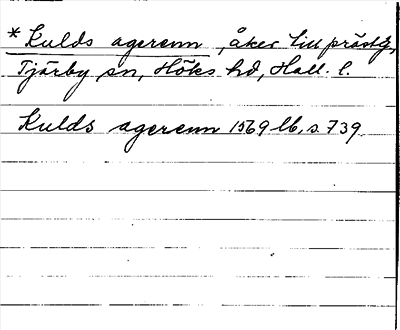 * Kulds agerenn, åker till prästg,
Tjärby sn, Höks hd, Hall. l.
Kulds agerenn 1569 lb, s. 739